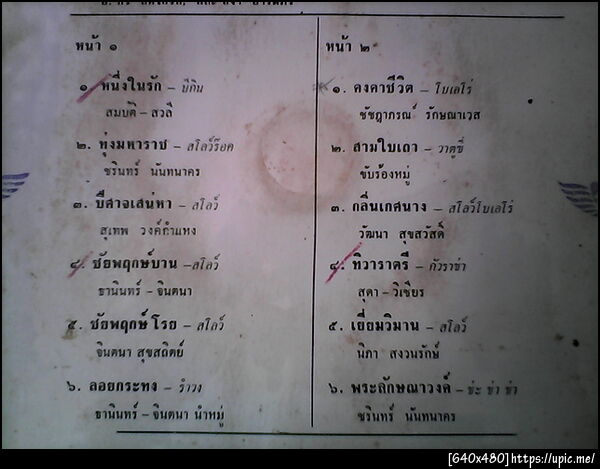 หน้า ๑
๑. หนึ่งในรัก – บีกิน
สมบัติ – สวลี
๒. ทุ่งมหาราช – สโลว์ร๊อค
ชรินทร์ นันทนาคร
๓. ปีศาจเสน่หา – สโลว์
สุเทพ วงศ์กำแหง
๔. ชัยพฤกษ์บาน – สโลว์
ธานินทร์ – จินตนา
๕. ชัยพฤกษ์โรย – สโลว์
จินตนา สุขสถิตย์
๖. ลอยกระทง – รำวง
ธานินทร์ – จินตนา นำหมู่
หน้า ๒
๑. คงคาชีวิต – โบเลโร่
ชัชฎาภรณ์ รักษณาเวส
๒. สามใบเถา – วาตูซี่
ขับร้องหมู่
๓. กลิ่นเกศนาง – สโลว์โบเลโร่
วัฒนา สุขสวัสดิ์
๔. ทิวาราตรี – กัวราช่า
สุดา – วิเชียร
๕. เยี่ยมวิมาน – สโลว์
นิภา สงวนรักษ์
๖. พระลักษณาวงศ์ – ช่ะ ช่า ช่า
ชรินทร์ นันทนาคร
[640x480]https://upic.me/